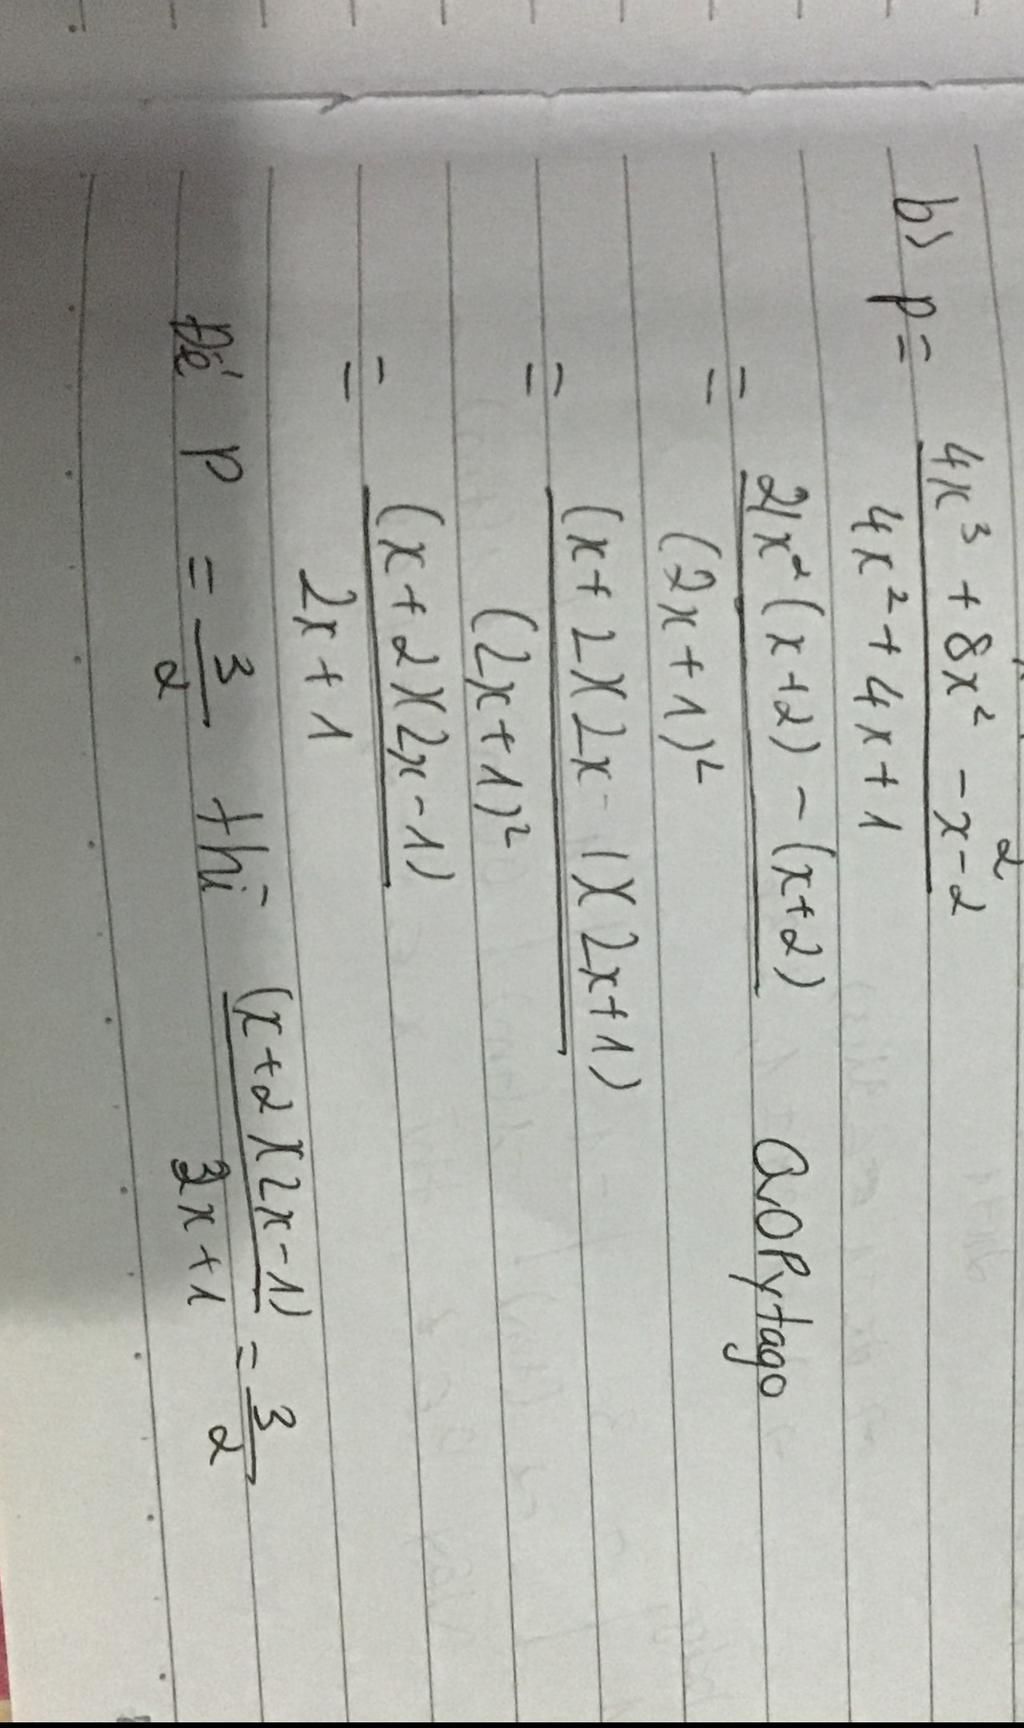 b) P = \frac{4x³ + 8x² - x - 2}{4x² + 4x + 1}
= \frac{4x²(x+2) - (x+2)}{(2x+1)²} QLOPytago
= \frac{(x+2)(2x-1)(2x+1)}{(2x+1)²}
= \frac{(x+2)(2x-1)}{2x+1}
Để P = \frac{3}{2} thì \frac{(x+2)(2x-1)}{2x+1} = \frac{3}{2}